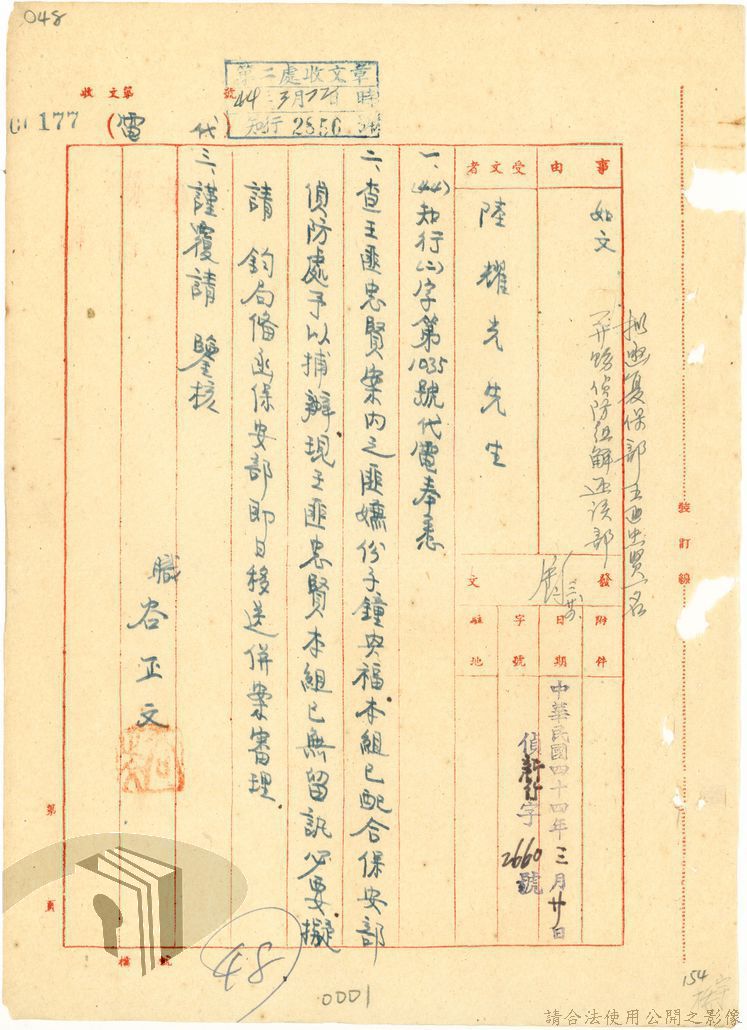 048
第二處收文章
44 3月22日 時
知行 2856 號
收文第 號
177
(電 代)
事由
如文
受文者
陸耀光先生
擬函復保部王匪忠賢一名
并飭偵防組解送該部
裝訂線
發文
附件
日期
中華民國四十四年三月廿日
字號
偵新行字2660號
駐地
一、(44)知行(二)字第1035號代電奉悉
二、查王匪忠賢案内之匪嫌份子鐘央福本組已配合保安部
偵防處予以捕辦現王匪忠賢本組已無留訊必要擬
請 鈞局備函保安部即日移送併案審理
三、謹覆請 鑒核
職 谷正文
第 頁
檔號
0001
154
請合法使用公開之影像